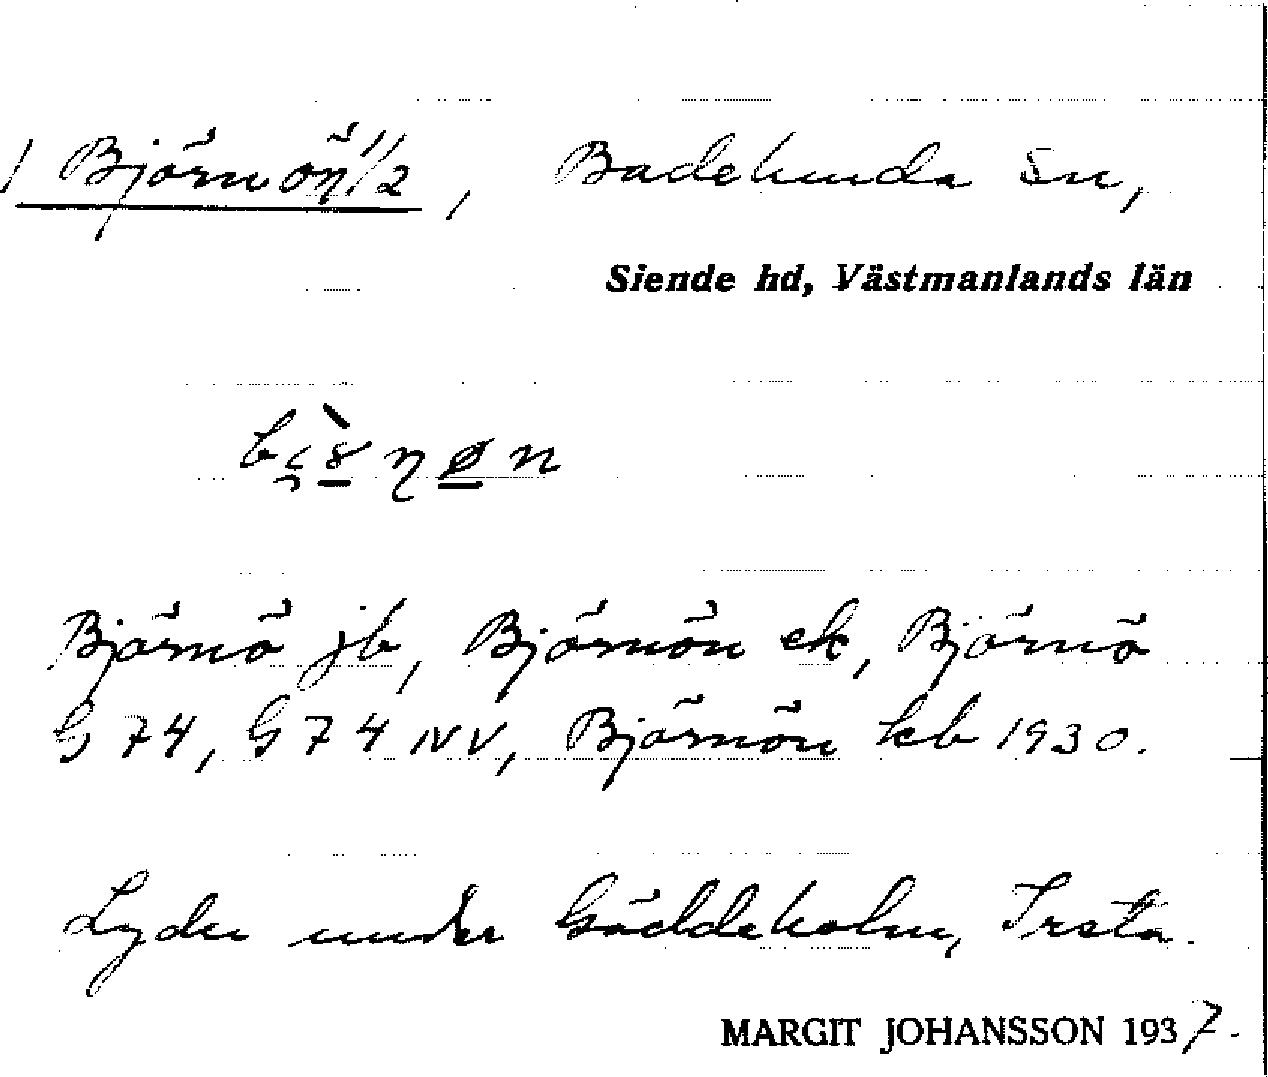 1 Björnön 1/2, Badelunda sn,
Siende hd, Västmanlands län
Björnö jb, Björnön ek, Björnö
G 74, G 74 NV, Björnön kb 1930.
Lyder under Gäddeholm, Irsta.
MARGIT JOHANSSON 1937.